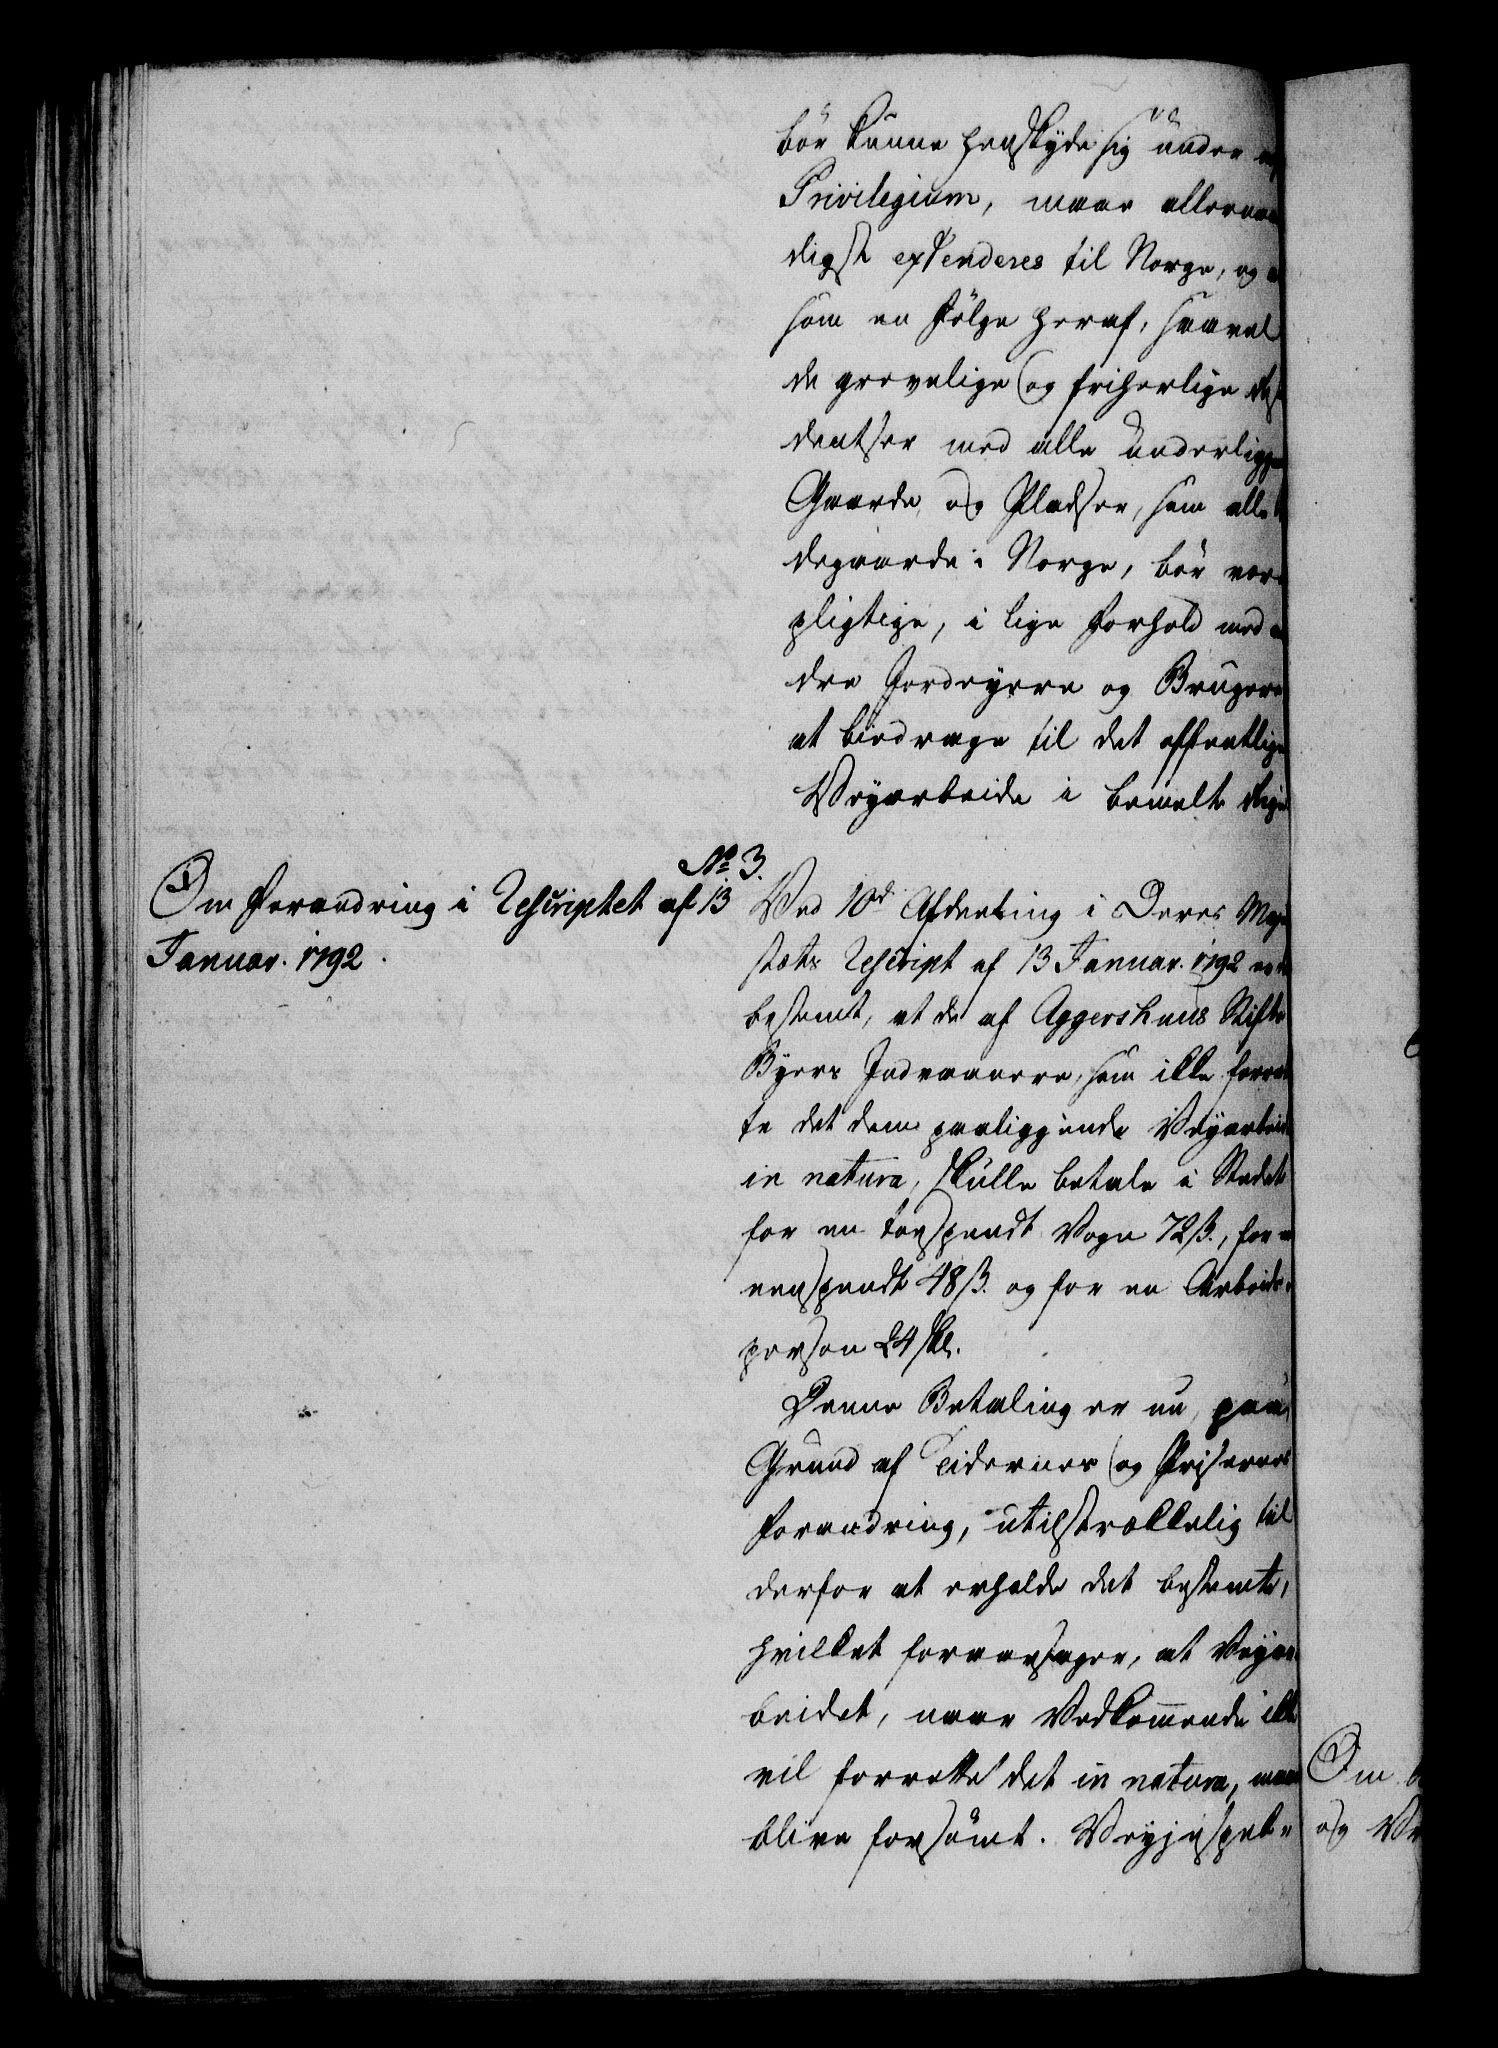 bör kunne henskyde sig under
Privilegium, maae allernaa
digst extenderes til Norge, og
som en Fölge heraf, saavel
de grevelige og friherlige Resi
dentser med alle underliggen
Gaarde og Pladser, som alle
degaarde i Norge, bör være
pligtige, i lige Forhold med
dre Jordeyere og Brugere
at bidrage til det offentlige
Veyarbeide i bemelte Rige
No. 3.
Om Forandring i Rescriptet af 13
Januar. 1792.
Ved 10de Afdeeling i Deres Maje
stæts Rescript af 13 Januar. 1792 er
bestemt, at de af Aggershuus Stifts
Byers Indvaanere, som ikke forret
te det dem paaliggende Veyarbeide
in natura, skulle betale i Stedet
for en toespændt Vogn 72 ß., for
eenspændt 48 ß. og for en Arbeids-
person 24 skl.
Denne Betaling er nu, paa
Grund af Tidernes og Prisernes
Forandring, utilstrækkelig til
derfor at erholde det bestemte,
hvilket foraarsager, at Veyar
beidet, naar Vedkommende ikke
vil forrette det in natura, maae
blive forsömt. Veyinspek-
Om
og